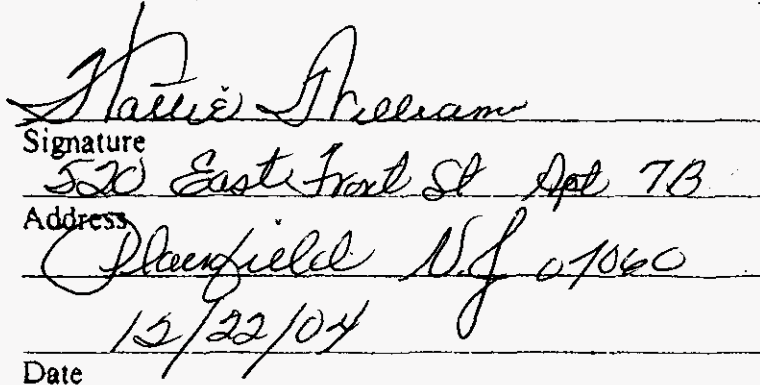 Hattie William
Signature
520 East Front St Apt 7B
Address
Plainfield N.J 07060
12/22/04
Date